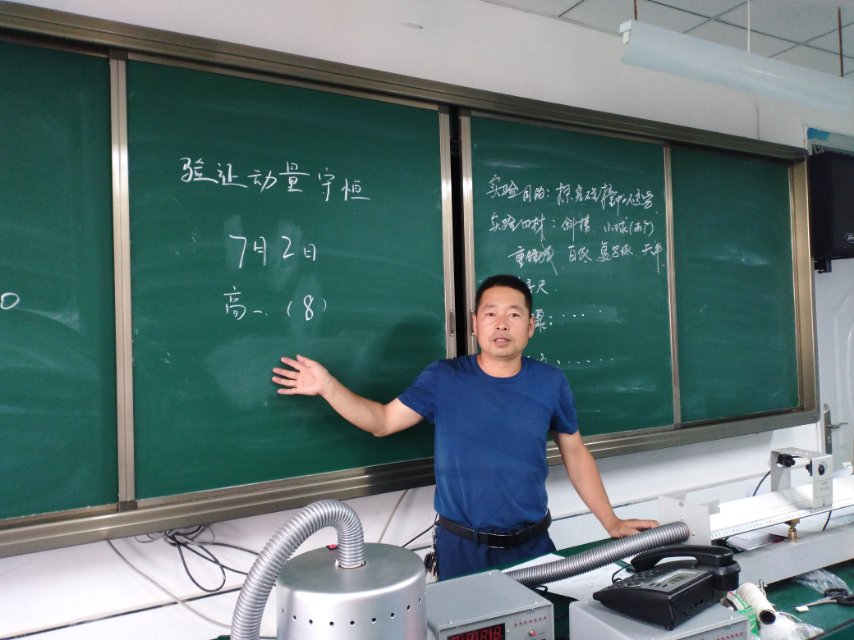 验证动量守恒
7月2日
高一.(8)
实验目的:探究碰撞中的不变量
实验器材:斜槽、小球(两个)
重锤线 白纸 复写纸 天平